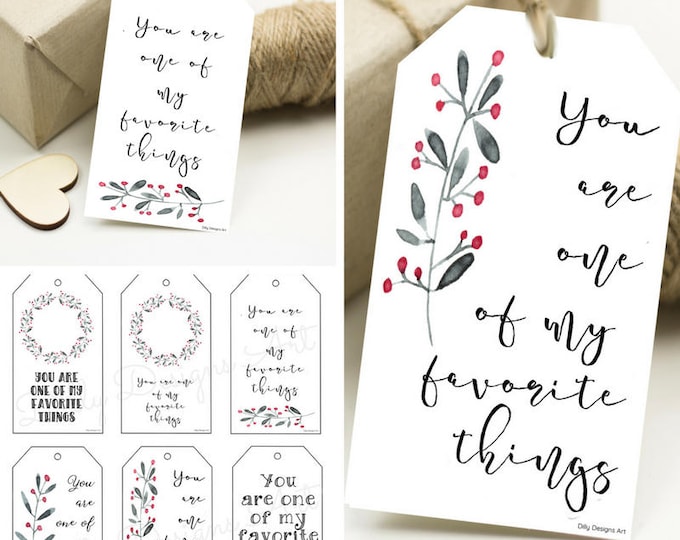 You are
one of
my
favorite
things
Dilly Designs Art
You
are
one
of my
favorite
things
Dilly Designs Art
YOU ARE
ONE OF MY
FAVORITE
THINGS
You are one
of my
favorite
things
You are
one of
my
favorite
things
Dilly Designs Art
You
are
one of
You
are
one
You
are one
of my
favorite